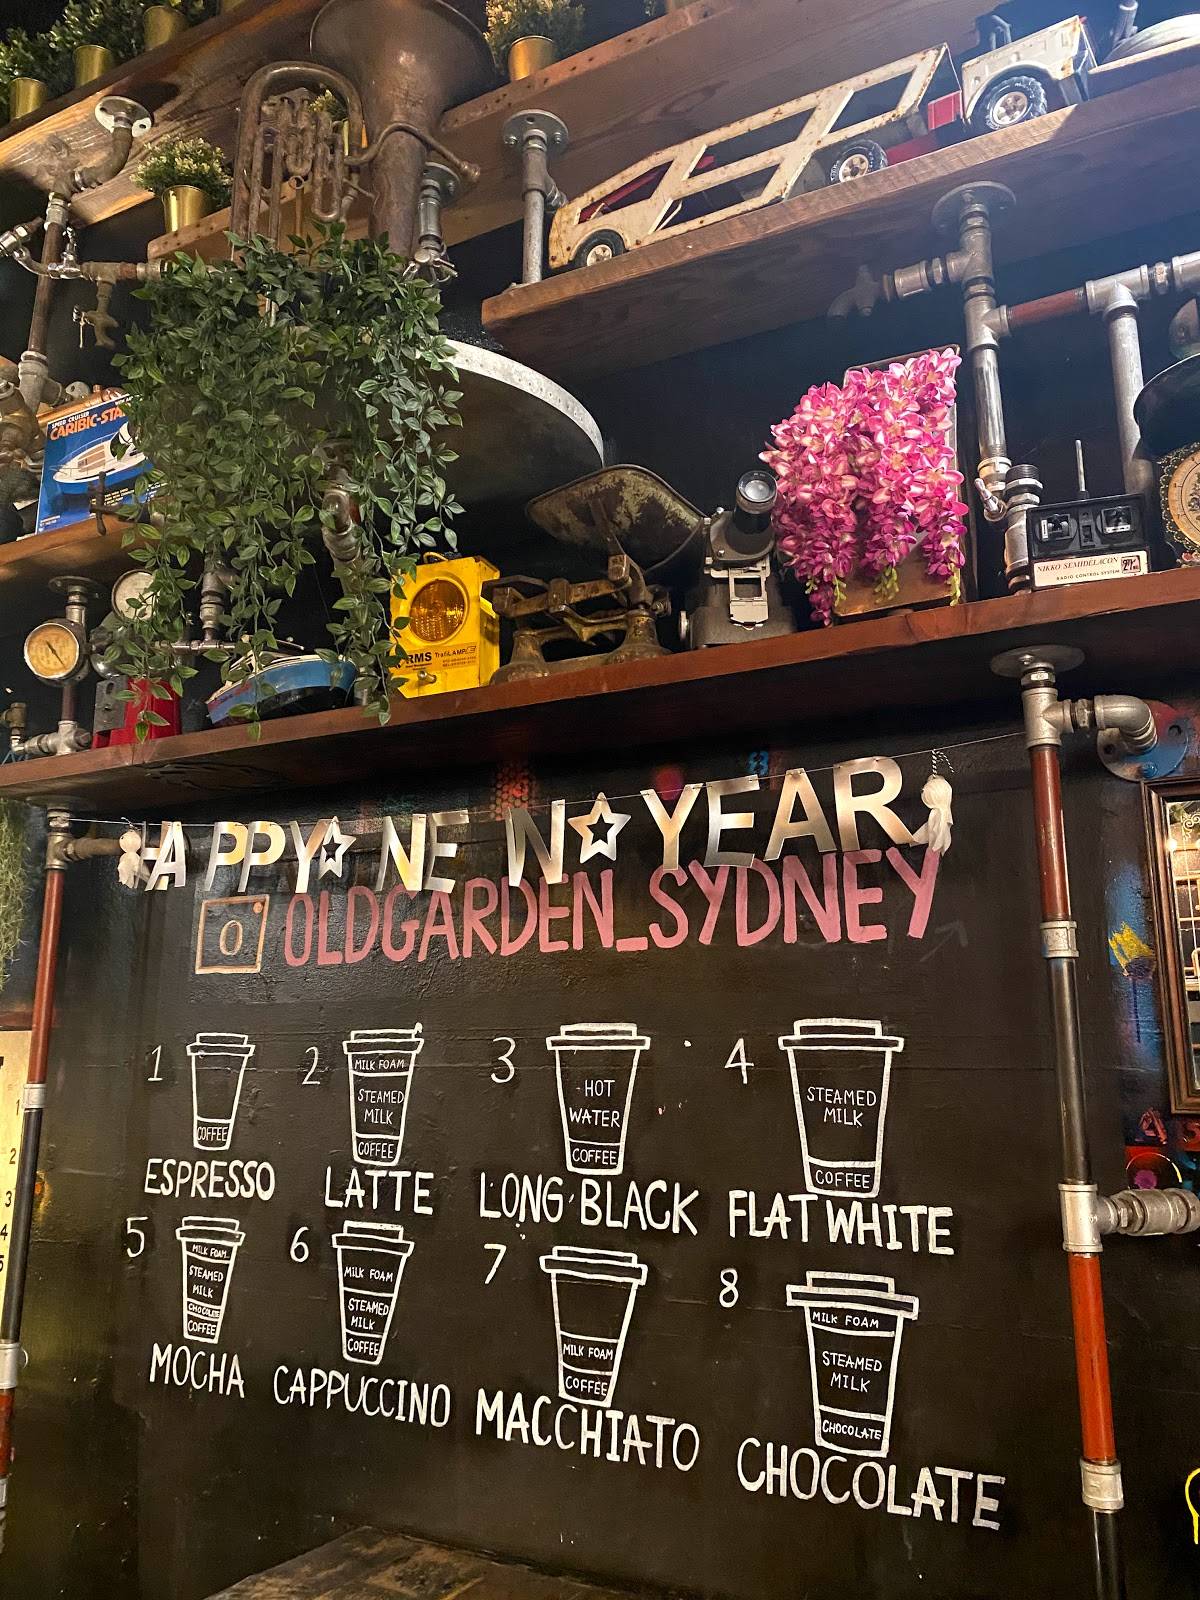 SPEED CRUISER
CARIBIC-STA
RMS TrafiLAMP
NIKKO SEMIDELACON
RADIO CONTROL SYSTEM
HAPPY NEW YEAR
O OLDGARDEN_SYDNEY
1
COFFEE
ESPRESSO
2
MILK FOAM
STEAMED
MILK
COFFEE
LATTE
3
HOT
WATER
COFFEE
LONG BLACK
4
STEAMED
MILK
COFFEE
FLAT WHITE
5
MILK FOAM
STEAMED
MILK
CHOCOLATE
COFFEE
MOCHA
6
MILK FOAM
STEAMED
MILK
COFFEE
CAPPUCCINO
7
MILK FOAM
COFFEE
MACCHIATO
8
MILK FOAM
STEAMED
MILK
CHOCOLATE
CHOCOLATE
1
2
3
4
5